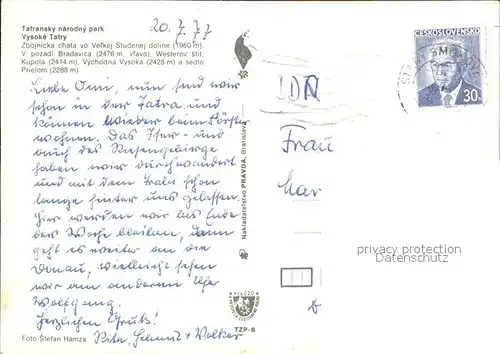 Tatranský národný park
Vysoké Tatry
Zbojnícka chata vo Veľkej Studenej doline (1960 m).
V pozadí Bradavica (2476 m, vľavo), Westerov štít,
Kupola (2414 m), Východná Vysoká (2428 m) a sedlo
Prielom (2288 m)
20.7.77
Liebe Omi, nun sind wir
schon in der Tatra und
können wieder beim Förster
wohnen. Das Iser- und
auch das Riesengebirge
haben wir durchwandert
und mit dem Trabi schon
lange hinter uns gelassen.
Hier werden wir bis Ende
der Woche bleiben, dann
geht es weiter an die
Donau, vielleicht sehen
wir am anderen Ufer
Wolfgang.
Herzlichen Gruß!
Rita, Helmut + Volker
Foto Štefan Hamza
Nakladateľstvo PRAVDA, Bratislava
TZP-B
ČESKOSLOVENSKO
30h
DDR
Frau
privacy protection
Datenschutz